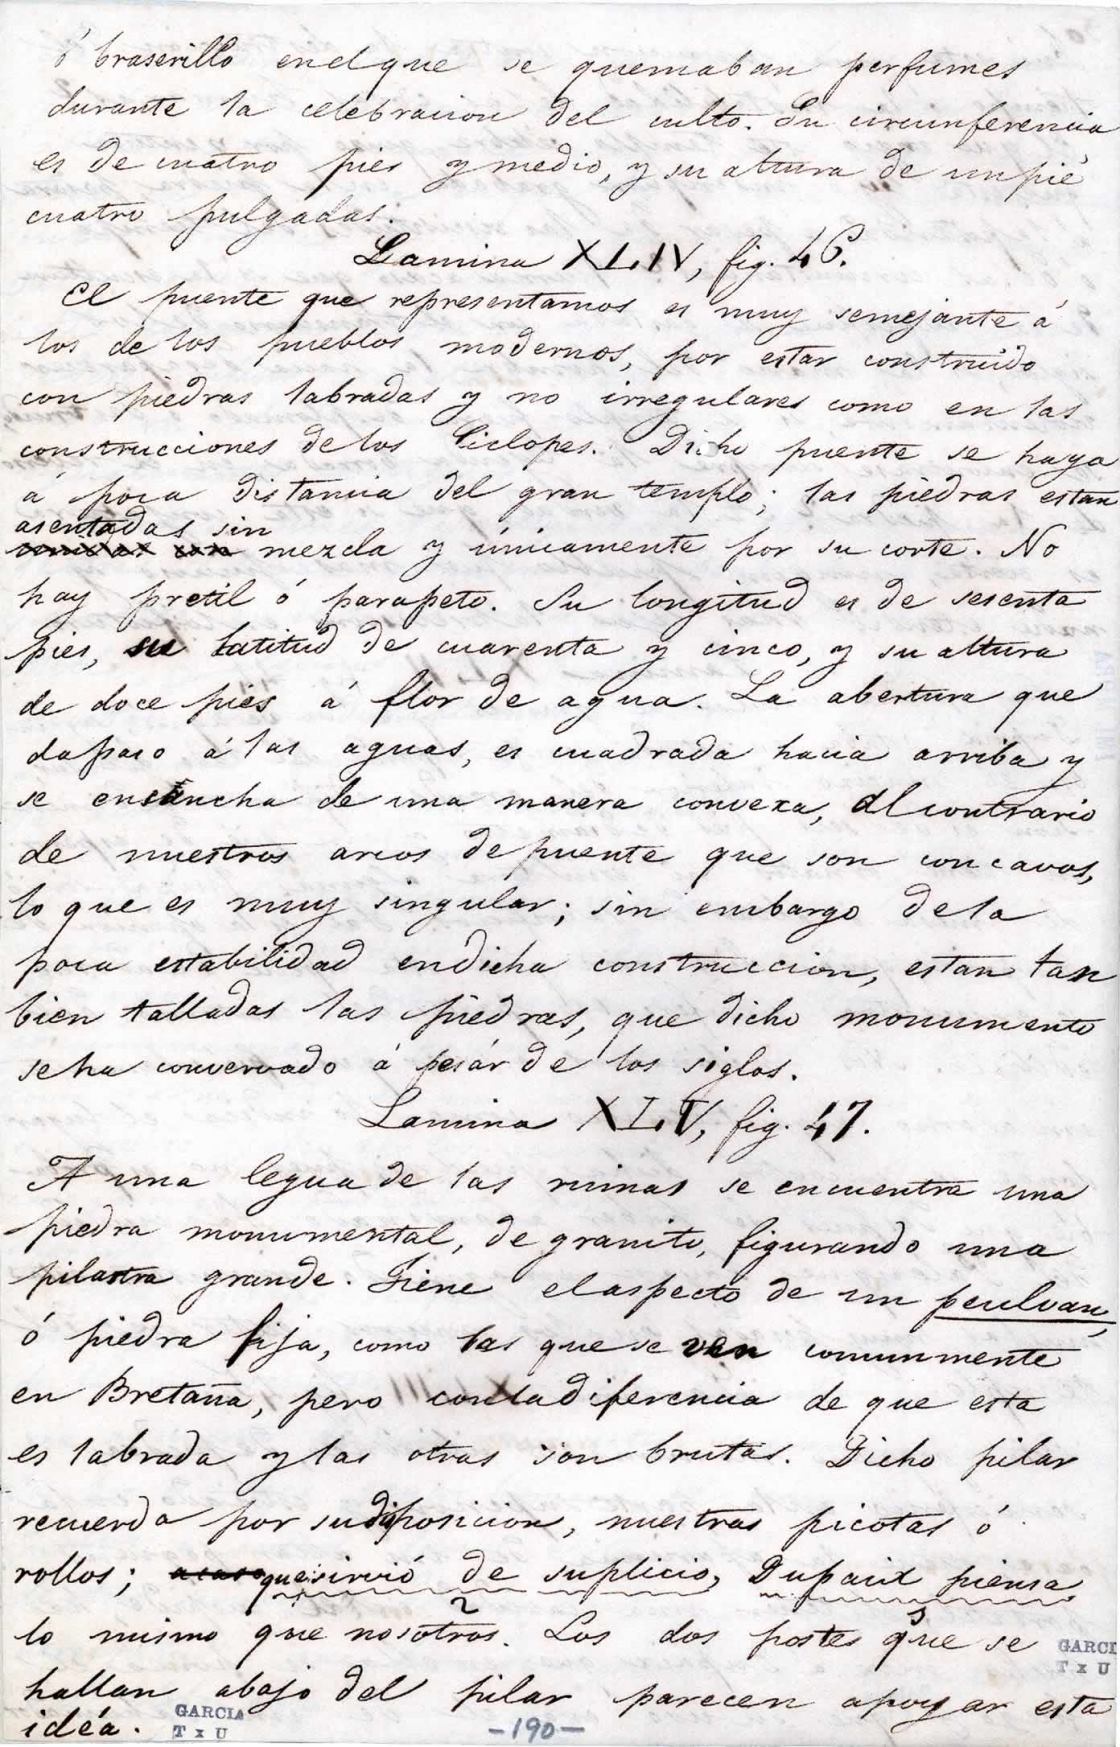 ó braserillo en el que se quemaban perfumes
durante la celebracion del culto. Su circunferencia
es de cuatro pies y medio, y su altura de un pié
cuatro pulgadas.
Lamina XLIV, fig. 46.
El puente que representamos es muy semejante á
los de los pueblos modernos, por estar construido
con piedras labradas y no irregulares como en las
construcciones de los Ciclopes. Dicho puente se haya
á poca distancia del gran templo; las piedras estan
asentadas sin
mezcla y únicamente por su corte. No
hay pretil ó parapeto. Su longitud es de sesenta
pies, su latitud de cuarenta y cinco, y su altura
de doce piés á flor de agua. La abertura que
da paso á las aguas, es cuadrada hacia arriba y
se ensancha de una manera convexa, al contrario
de nuestros arcos de puente que son concavos,
lo que es muy singular; sin embargo de la
poca estabilidad en dicha construccion, estan tan
bien talladas las piedras, que dicho monumento
se ha convervado á pesár de los siglos.
Lamina XLV, fig. 47.
A una legua de las ruinas se encuentra una
piedra monumental, de granito, figurando una
pilastra grande. Tiene el aspecto de un peulvan,
ó piedra fija, como las que se ven comunmente
en Bretaña, pero con la diferencia de que esta
es labrada y las otras son brutas. Dicho pilar
recuerda por su disposicion, nuestras picotas ó
rollos; acaso que sirvió de suplicio, Dupaix piensa
lo mismo que nosotros. Los dos postes que se
hallan abajo del pilar parecen apoyar esta
idéa.
GARCIA
T x U
GARCI
T x U
-190-